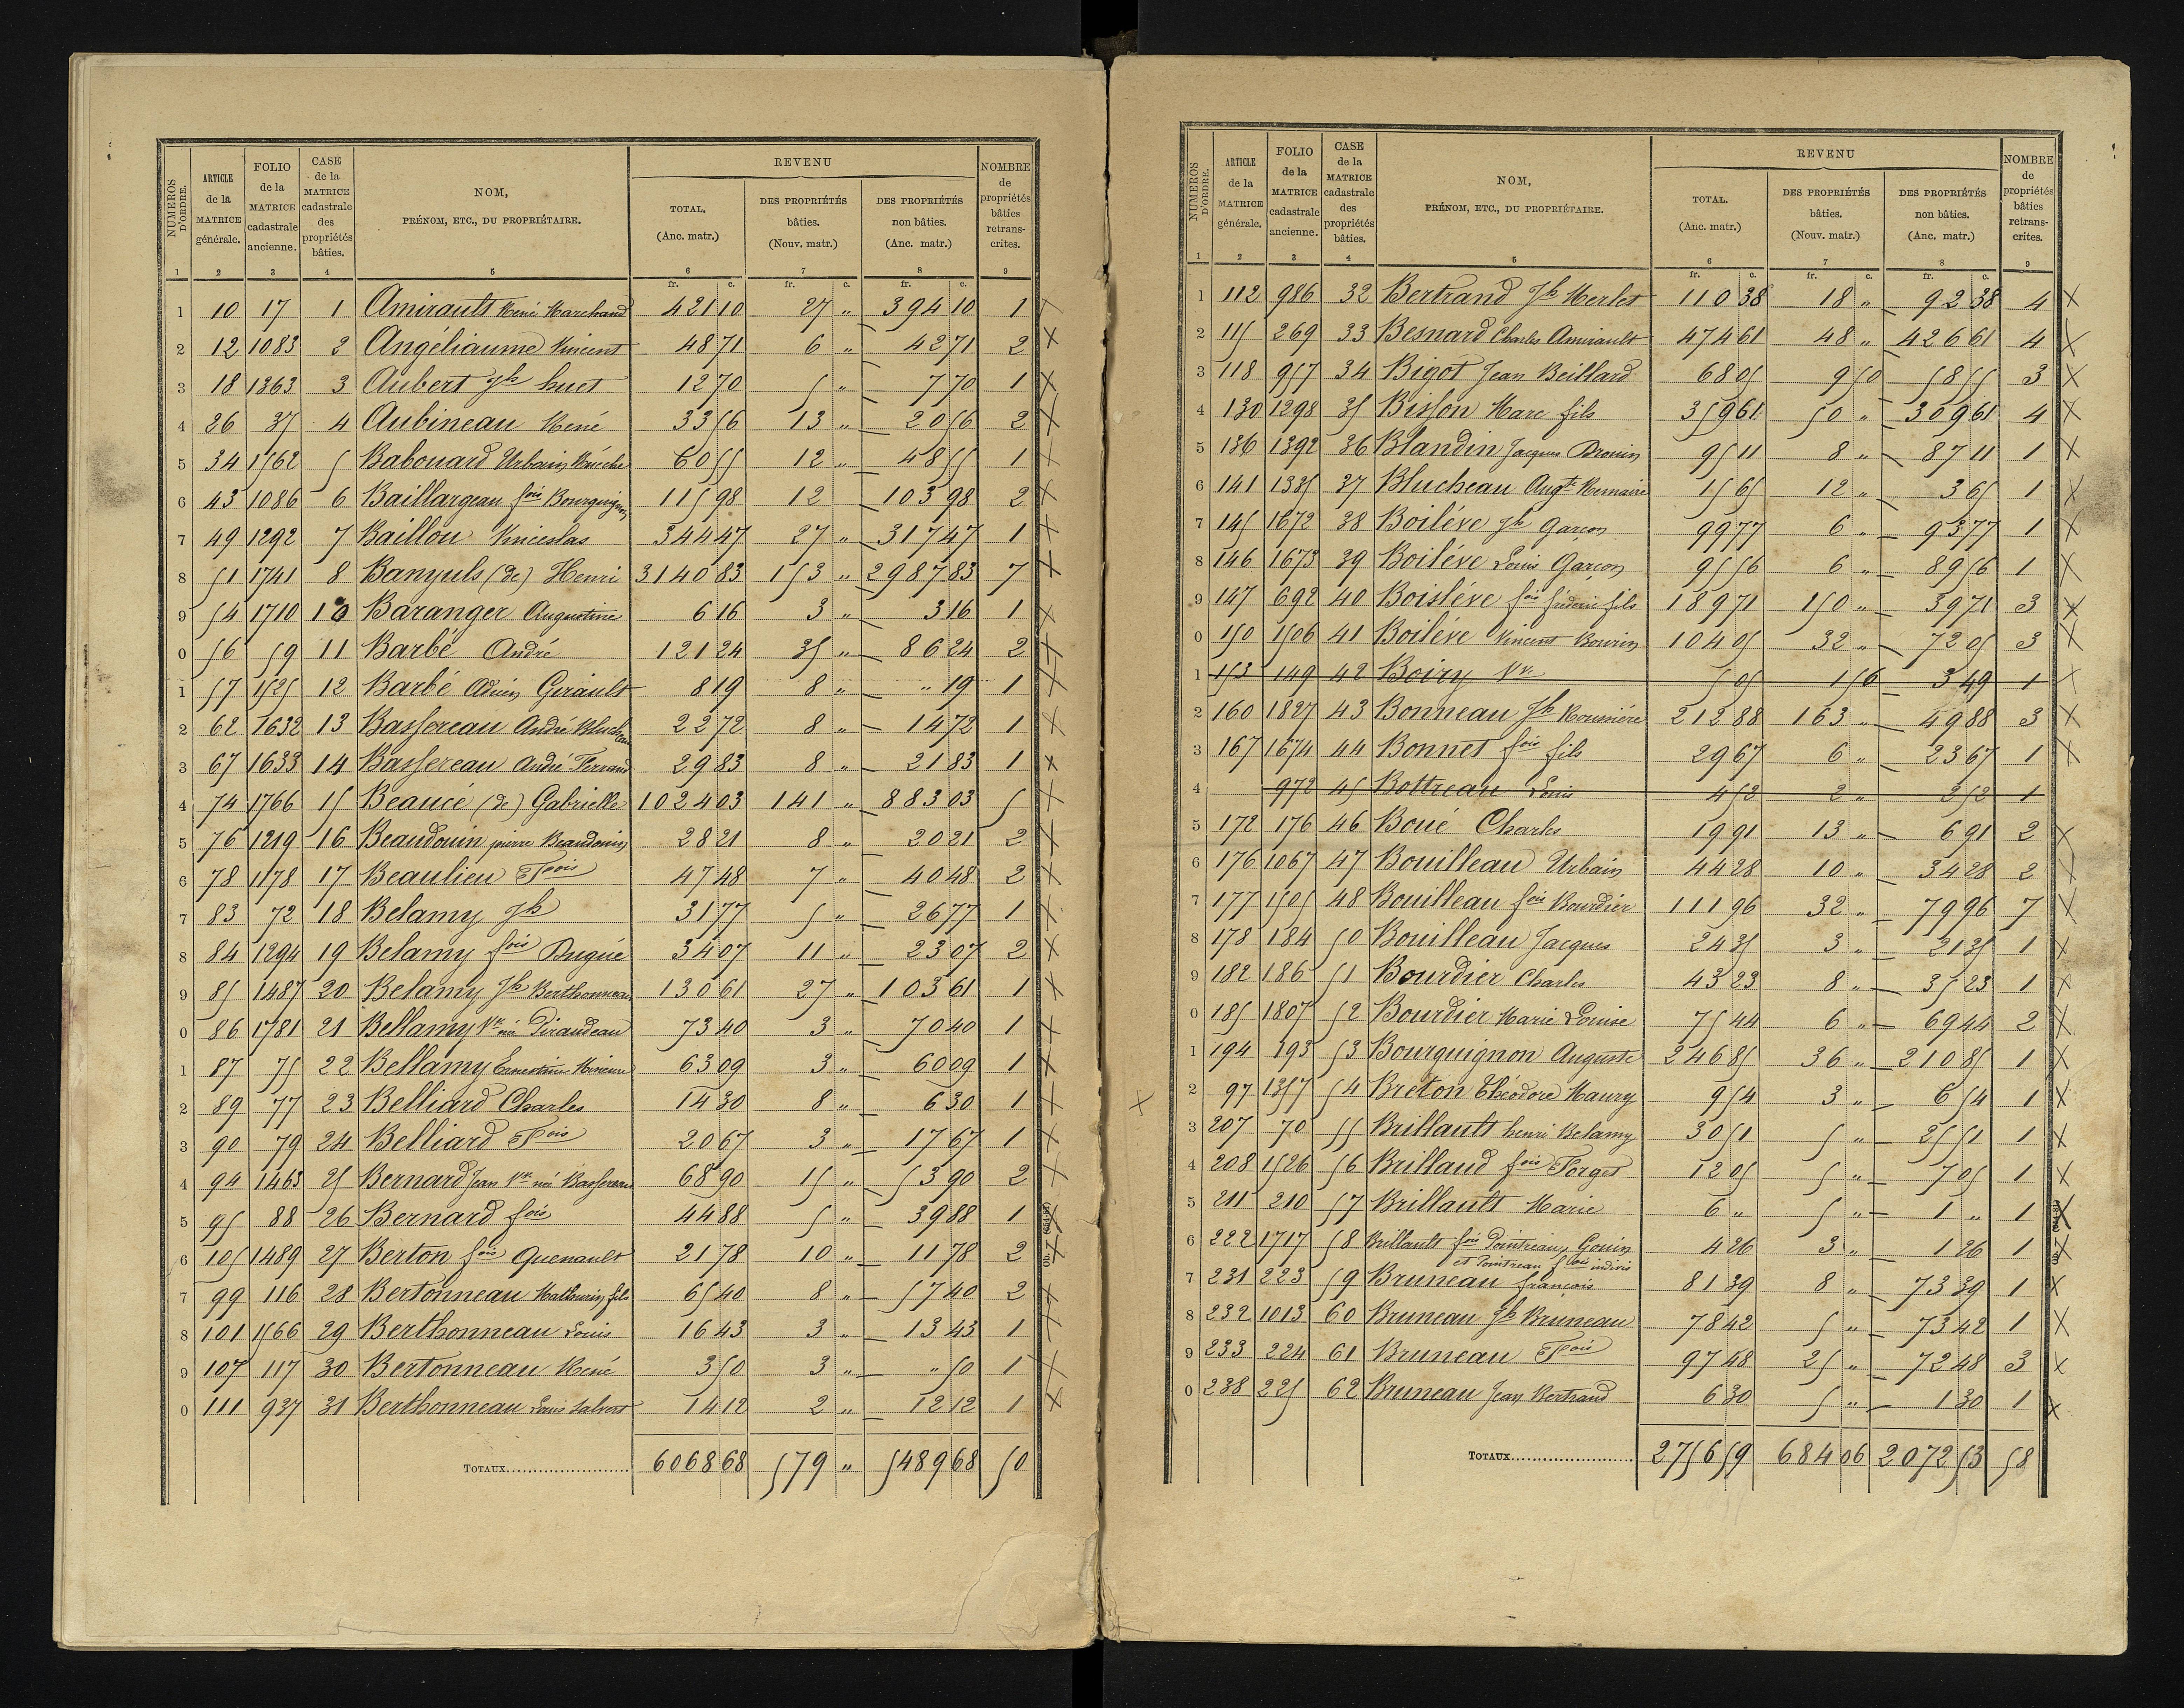 NUMÉROS D'ORDRE. | ARTICLE de la MATRICE générale. | FOLIO de la MATRICE cadastrale ancienne. | CASE de la MATRICE cadastrale des propriétés bâties. | NOM, PRÉNOM, ETC., DU PROPRIÉTAIRE. | REVENU TOTAL. (Anc. matr.) | DES PROPRIÉTÉS bâties. (Nouv. matr.) | DES PROPRIÉTÉS non bâties. (Anc. matr.) | NOMBRE de propriétés bâties retrans-crites.
1 2 3 4 5 6 7 8 9
fr. c. fr. c. fr. c.
1 10 17 1 Amirault René Marchand 421 10 27 " 394 10 1 X
2 12 1083 2 Angéliaume Vincent 48 71 6 " 42 71 2 X
3 18 1363 3 Aubert Jh huet 12 70 5 " 7 70 1 X
4 26 37 4 Aubineau René 33 56 13 " 20 56 2 X
5 34 1562 5 Babouard Urbain 60 55 12 " 48 55 1 X
6 43 1086 6 Baillargeau fois Bourguignon 115 98 12 103 98 2 X
7 49 1292 7 Baillou Vinceslas 344 47 27 " 317 47 1 X
8 51 1741 8 Banyuls (de) Henri 3140 83 153 " 2987 83 7 X
9 54 1710 10 Baranger Augustine 6 16 3 " 3 16 1 X
0 56 59 11 Barbé André 121 24 35 " 86 24 2 X
1 57 1525 12 Barbé Adrien Girault 8 19 8 " " 19 1 X
2 62 1632 13 Bassereau André Blucheau 22 72 8 " 14 72 1 X
3 67 1633 14 Bassereau André Ferrand 29 83 8 " 21 83 1 X
4 74 1766 15 Beaucé (de) Gabrielle 1024 03 141 " 883 03 5 X
5 76 1219 16 Beaudouin pierre Beaudouin 28 21 8 " 20 21 2 X
6 78 1178 17 Beaulieu Fois 47 48 7 " 40 48 2 X
7 83 72 18 Belamy Jh 31 77 5 " 26 77 1 X
8 84 1294 19 Belamy fois Dugué 34 07 11 " 23 07 2 X
9 85 1487 20 Belamy Jh Berthonneau 130 61 27 " 103 61 1 X
0 86 1781 21 Bellamy Ve née Piraudeau 73 40 3 " 70 40 1 X
1 87 75 22 Bellamy Ernestine Mineure 63 09 3 " 60 09 1 X
2 89 77 23 Belliard Charles 14 30 8 " 6 30 1 X
3 90 79 24 Belliard Fois 20 67 3 " 17 67 1 X
4 94 1463 25 Bernard Jean Ve née Bassereau 68 90 15 " 53 90 2 X
5 95 88 26 Bernard fois 44 88 5 " 39 88 1 X
6 105 1489 27 Berton fois Quenault 21 78 10 " 11 78 2 X
7 99 116 28 Bertonneau Mathurin fils 65 40 8 " 57 40 2 X
8 101 1566 29 Berthonneau Louis 16 43 3 " 13 43 1 X
9 107 117 30 Bertonneau René 3 50 3 " " 50 1 X
0 111 937 31 Berthonneau Louis Salvert 14 12 2 " 12 12 1 X
TOTAUX 6068 68 579 " 5489 68 50
NUMÉROS D'ORDRE. | ARTICLE de la MATRICE générale. | FOLIO de la MATRICE cadastrale ancienne. | CASE de la MATRICE cadastrale des propriétés bâties. | NOM, PRÉNOM, ETC., DU PROPRIÉTAIRE. | REVENU TOTAL. (Anc. matr.) | DES PROPRIÉTÉS bâties. (Nouv. matr.) | DES PROPRIÉTÉS non bâties. (Anc. matr.) | NOMBRE de propriétés bâties retrans-crites.
1 2 3 4 5 6 7 8 9
fr. c. fr. c. fr. c.
1 112 986 32 Bertrand Jh Merlet 110 38 18 " 92 38 4 X
2 115 269 33 Besnard Charles Amirault 474 61 48 " 426 61 4 X
3 118 957 34 Bigot Jean Beillard 68 05 9 50 58 55 3 X
4 130 1298 35 Bisson Marc fils 359 61 50 " 309 61 4 X
5 136 1392 36 Blandin Jacques Drouin 95 11 8 " 87 11 1 X
6 141 1335 37 Blucheau Augte 15 65 12 " 3 65 1 X
7 145 1672 38 Boiléve Jh Garçon 99 77 6 " 93 77 1 X
8 146 1673 39 Boiléve Louis Garçon 95 56 6 " 89 56 1 X
9 147 692 40 Boisléve fois frederic fils 189 71 150 " 39 71 3 X
0 150 1506 41 Boiléve Vincent Bourin 104 05 32 " 72 05 3 X
1 153 149 42 Boiry Ve 5 05 1 56 3 49 1 X
2 160 1827 43 Bonneau Jh Roussière 212 88 163 " 49 88 3 X
3 167 1674 44 Bonnet fois fils 29 67 6 " 23 67 1 X
4 972 45 Bottreau Louis 4 52 2 " 2 52 1
5 172 176 46 Boué Charles 19 91 13 " 6 91 2 X
6 176 1067 47 Bouilleau Urbain 44 28 10 " 34 28 2 X
7 177 1505 48 Bouilleau fois Bourdier 111 96 32 " 79 96 7 X
8 178 184 50 Bouilleau Jacques 24 35 3 " 21 35 1 X
9 182 186 51 Bourdier Charles 43 23 8 " 35 23 1 X
0 185 1807 52 Bourdier Marie Louise 75 44 6 " 69 44 2 X
1 194 193 53 Bourguignon Auguste 246 85 36 " 210 85 1 X
X 2 97 1357 54 Breton Théodore Maury 9 54 3 " 6 54 1 X
3 207 70 55 Brillault henri Belamy 30 51 5 " 25 51 1 X
4 208 1526 56 Brillaud fois Forget 12 05 5 " 7 05 1 X
5 211 210 57 Brillault Marie 6 " 5 " 1 " 1 X
6 222 1717 58 Brillault fois Pointreau, Gouin 4 26 3 " 1 26 1 X
et Pointreau fois indivis
7 231 223 59 Bruneau françois 81 39 8 " 73 39 1 X
8 232 1013 60 Bruneau Jh Bruneau 78 42 5 " 73 42 1 X
9 233 224 61 Bruneau Fois 97 48 25 " 72 48 3 X
0 238 225 62 Bruneau Jean Bertrand 6 30 5 " 1 30 1 X
TOTAUX 2756 59 684 06 2072 53 58